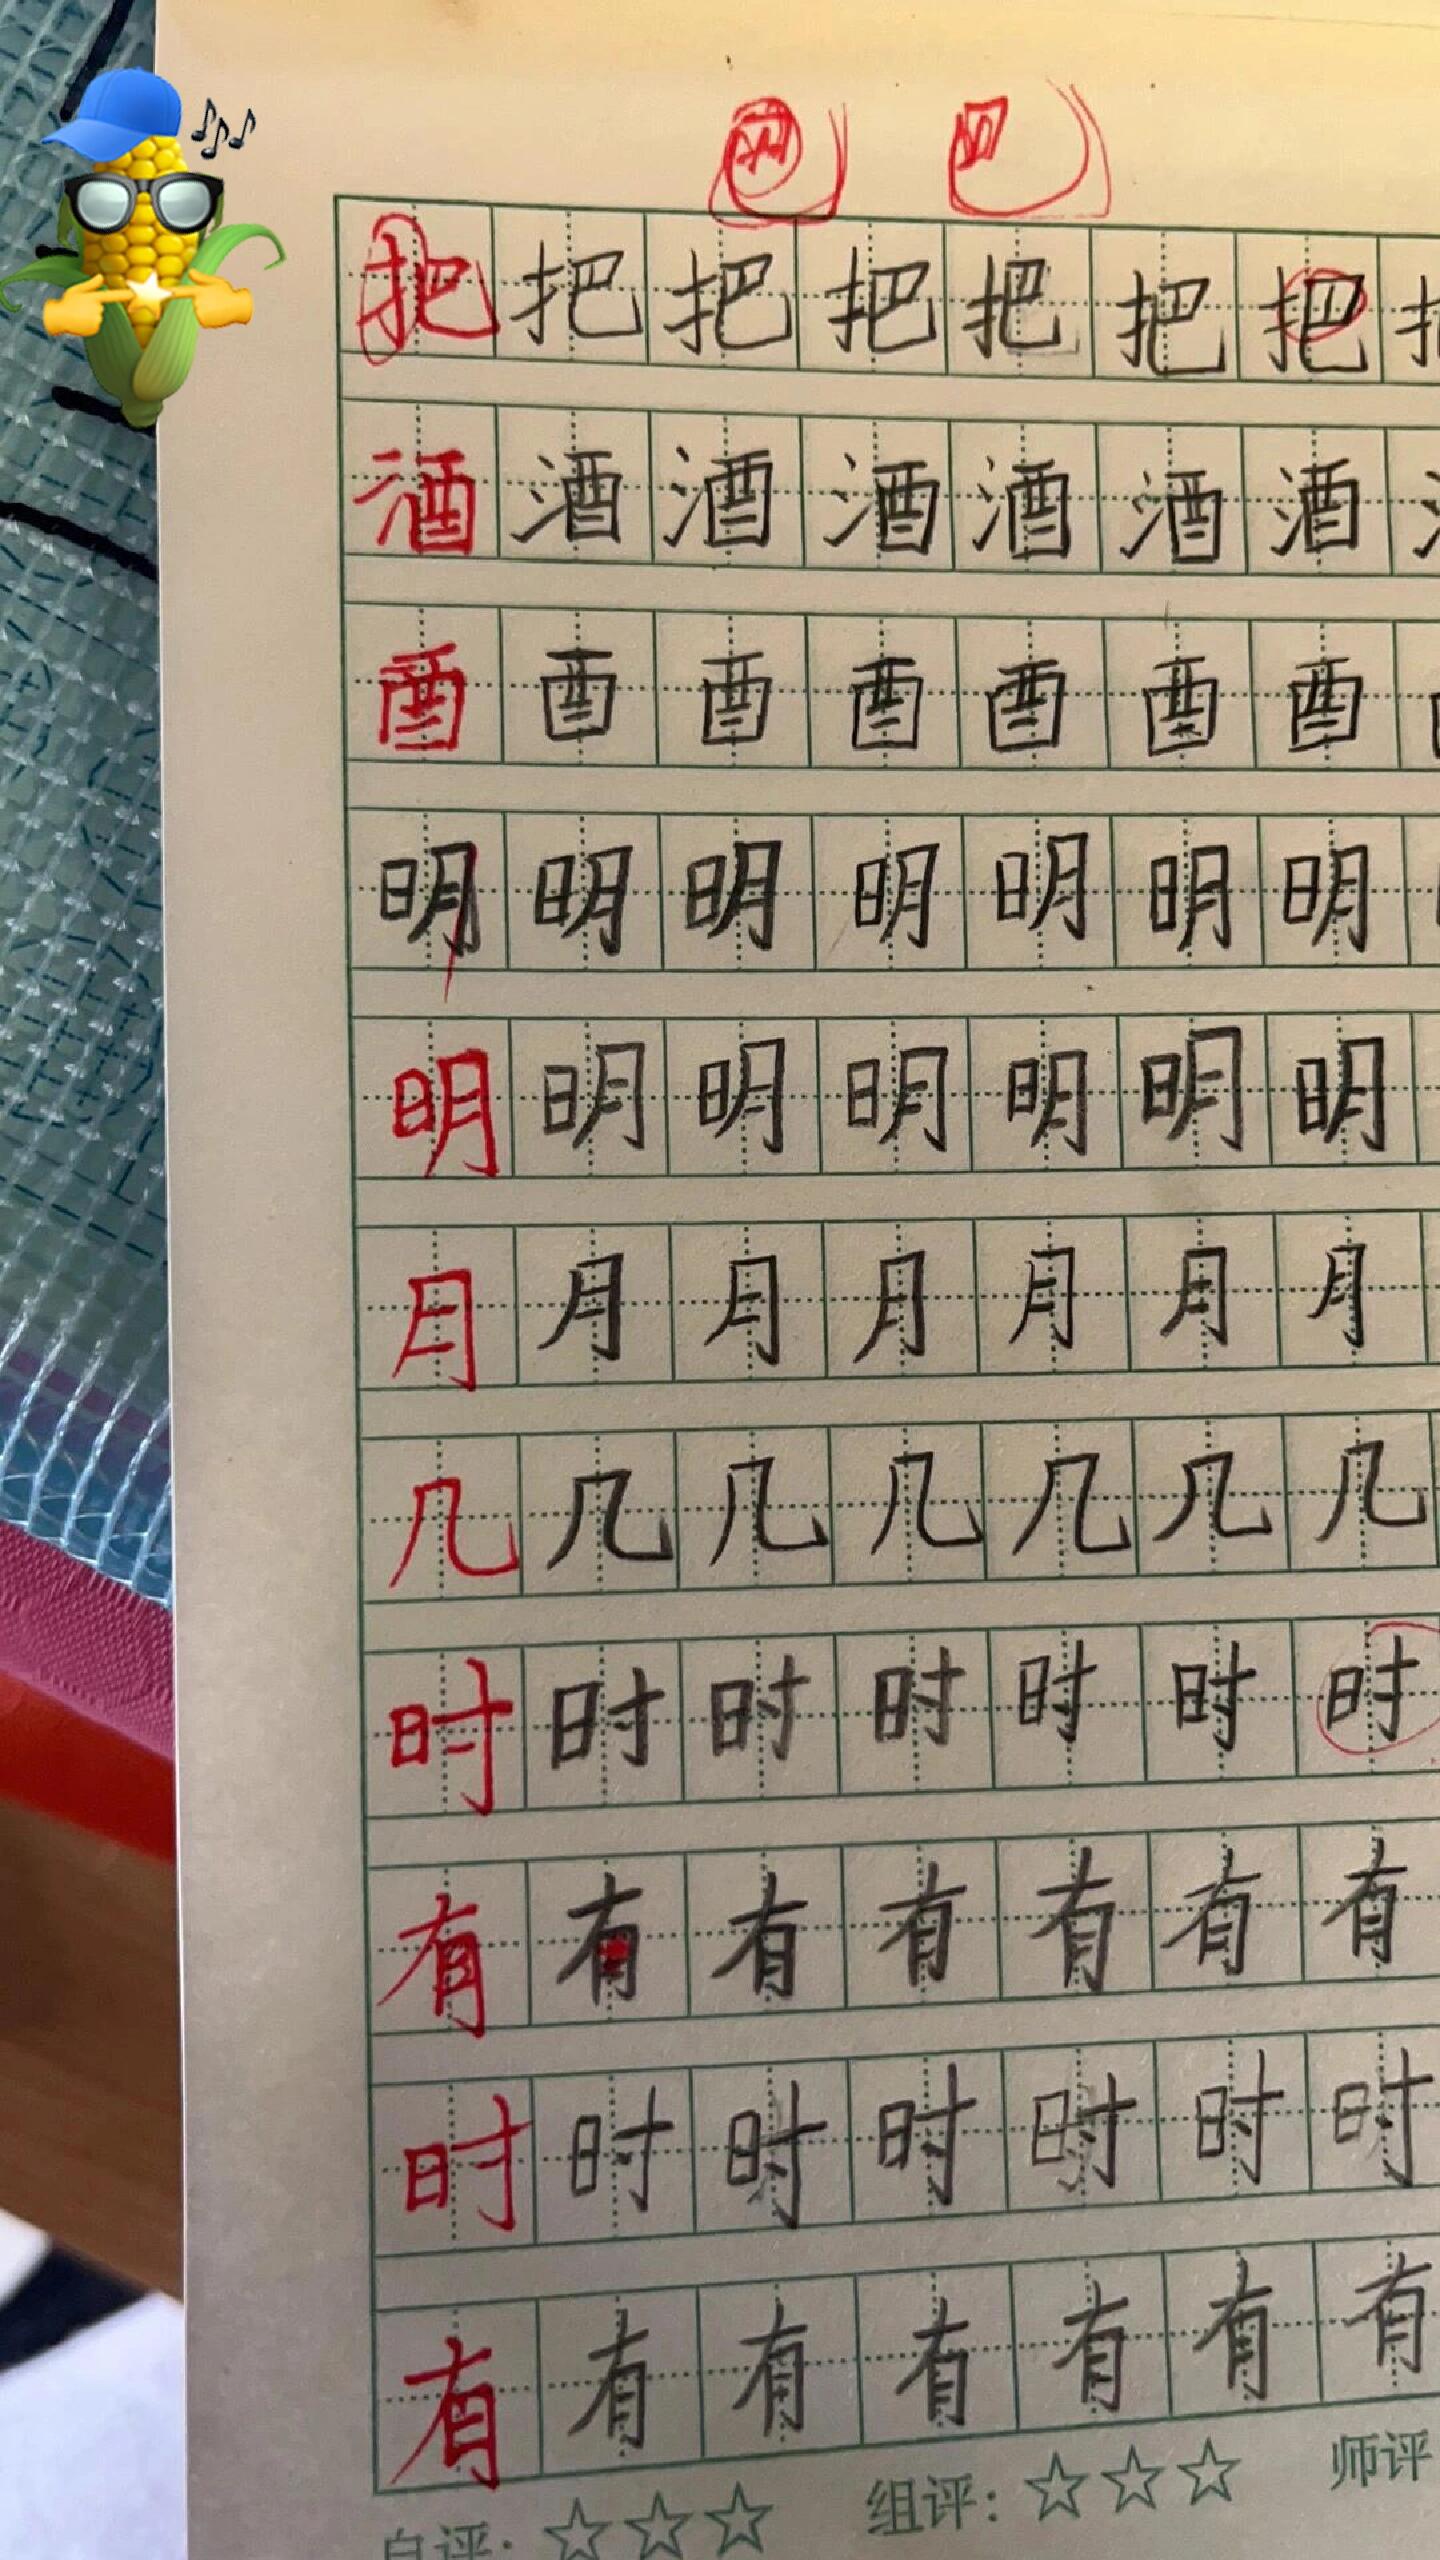 把把把把把把把
酒酒酒酒酒酒酒
酉酉酉酉酉酉酉
明明明明明明明
明明明明明明明
月月月月月月月
几几几几几几几
时时时时时时时
有有有有有有有
时时时时时时时
有有有有有有有
自评:☆☆☆ 组评:☆☆☆ 师评